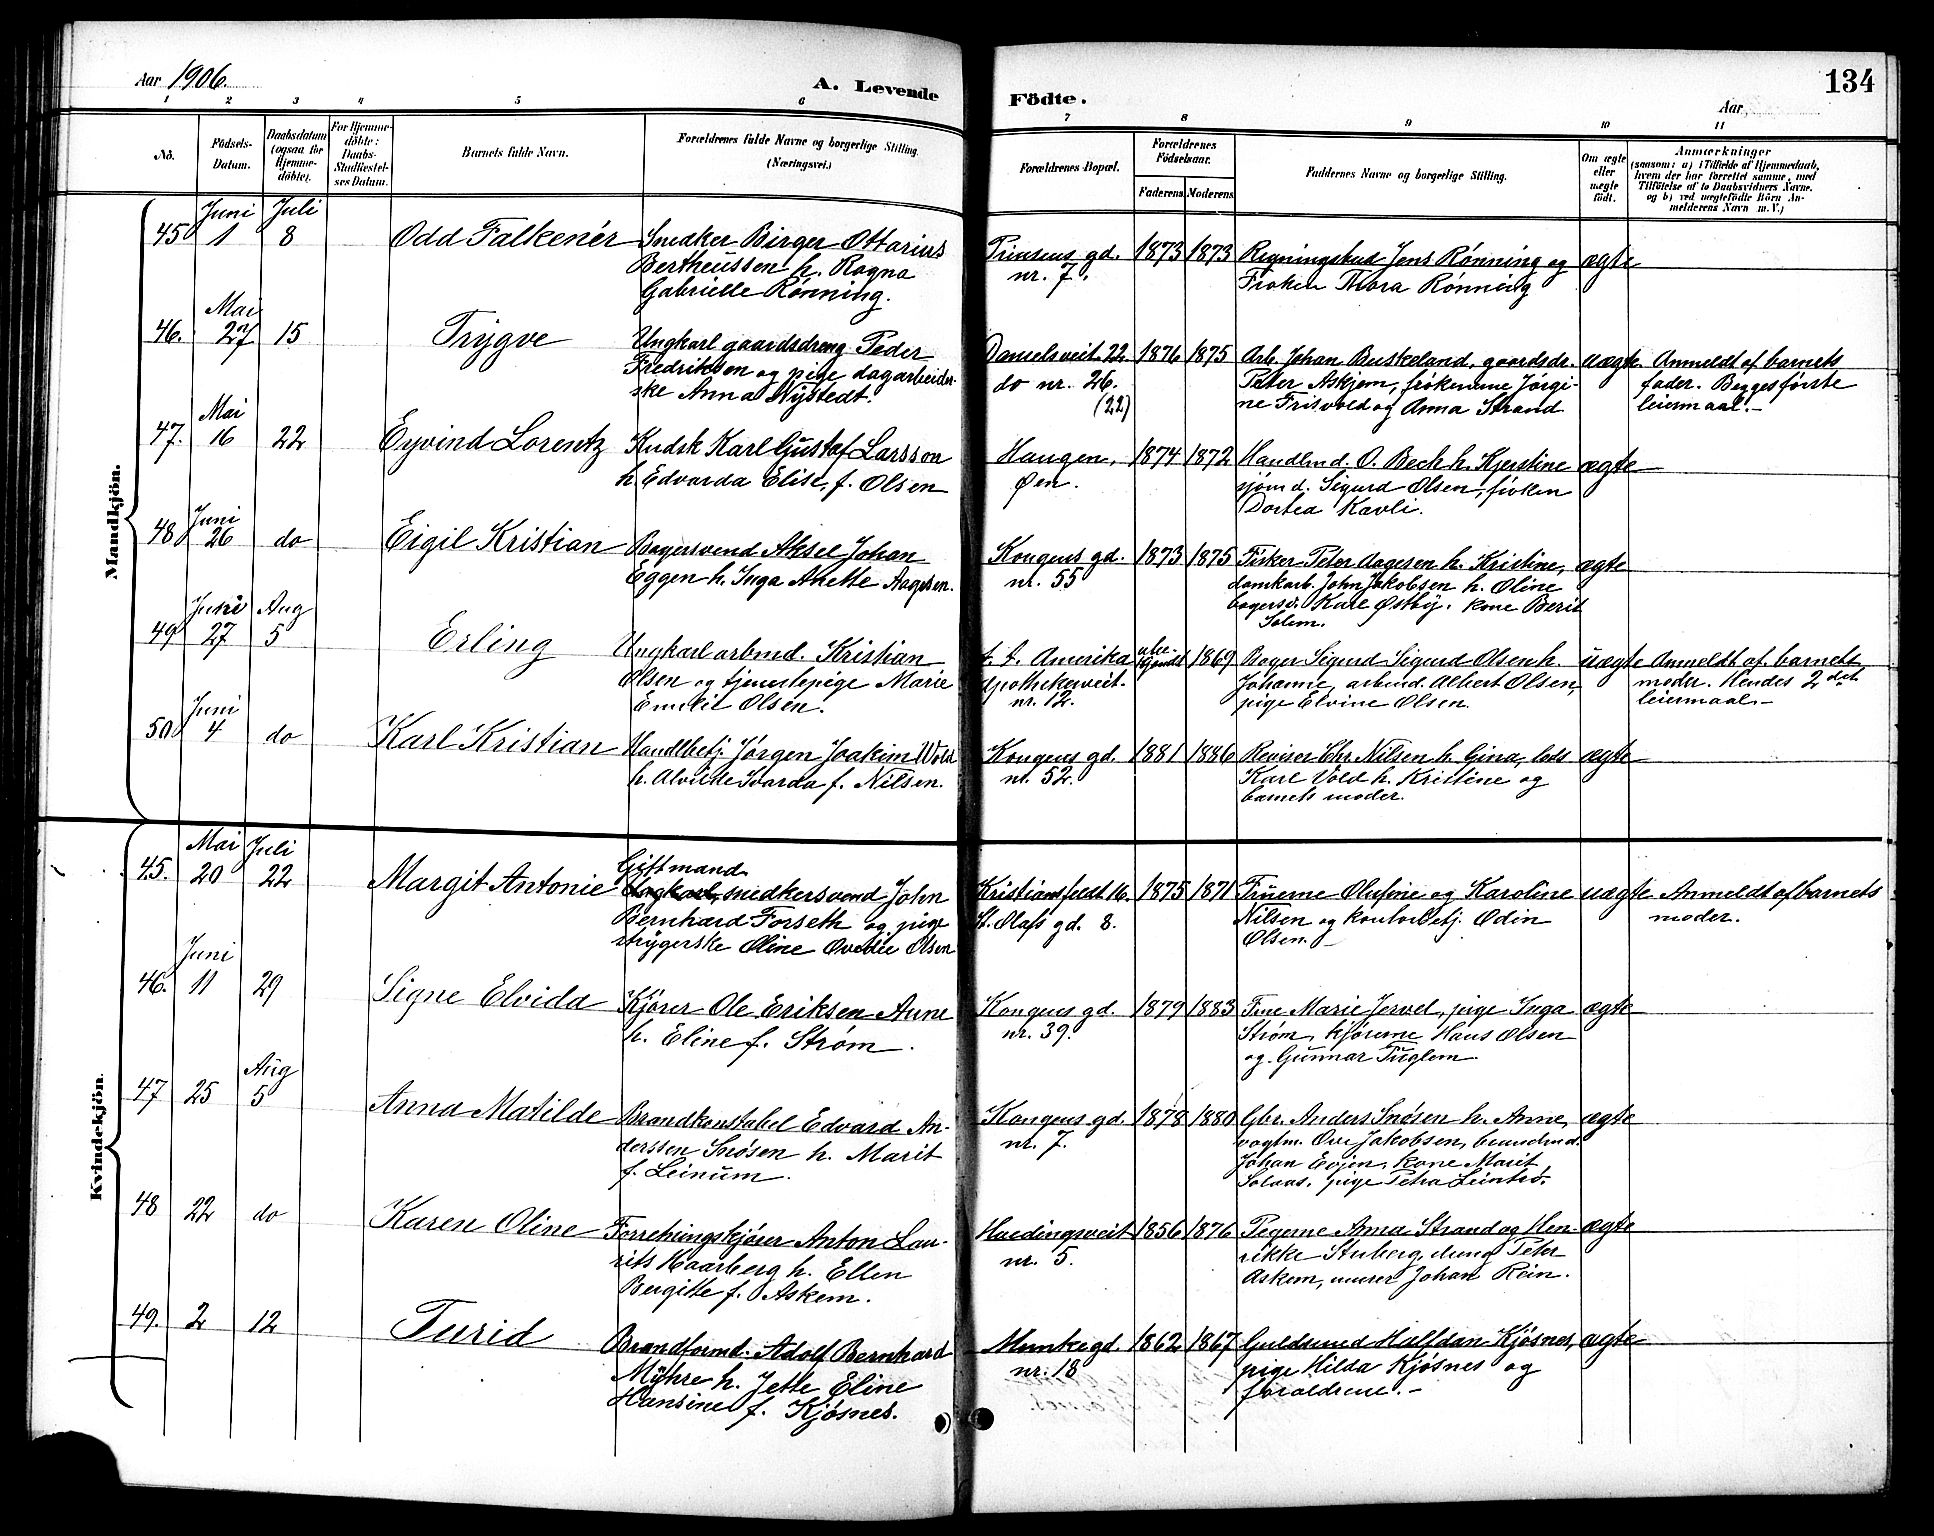 Aar 1906.
A. Levende
Födte.
134
Aar
1 2 3 4 5 6 7 8 9 10 11
Nö.
Födsels-
Datum.
Daabsdatum
(ogsaa for
Hjemme-
döbte).
For Hjemme-
döbte:
Daabs-
Stadfæstel-
ses Datum.
Barnets fulde Navn.
Forældrenes fulde Navne og borgerlige Stilling.
(Næringsvei.)
Forældrenes Bopæl.
Forældrenes
Födselsaar.
Faderens Moderens
Faddernes Navne og borgerlige Stilling.
Om ægte
eller
uægte
födt.
Anmærkninger
(saasom: a) i Tilfælde af Hjemmedaab,
hvem der har forrettet samme, med
Tilföielse af to Daabsvidners Navne.
og b) ved uægtefödte Börn An-
melderens Navn m. V.)
Mandkjön.
Juni Juli
45 1 8 Odd Falkenér Snedker Birger Ottarius
Bertheussen h. Ragna
Gabrielle Rønning.
Prinsens gd.
nr. 7.
1873 1873 Regningsbud Jens Rønning og
Frøken Thora Rønning
ægte
Mai
46. 27 15 Trygve Ungkarl gaardsdreng Peder
Fredriksen og pige dagarbeider-
ske Anna Nystedt.
Danielsveit 22
do nr. 26.
(22)
1876 1875 Arb. Johan Buskeland, gaardsdr.
Peter Askjem, frøknerne Jørgi-
ne Frisvold og Anna Strand
uægte Anmeldt af barnets
fader. Begges første
leiermaal.-
Mai
47. 16 22 Eyvind Lorentz Kudsk Karl Gustaf Larsson
h. Edvarda Elise, f. Olsen
Haugen,
Øen.
1874 1872 Handlmd. O. Bech h. Kjerstine
sjømd. Sigurd Olsen, frøken
Dortea Kavli.
ægte
Juni
48 26 do Eigil Kristian Bagersvend Aksel Johan
Eggen h. Inga Anette Aagesen.
Kongens gd.
nr. 55
1873 1875 Fisker Peter Aagesen h. Kristine,
damkarb. John Jakobsen h. Oline
bagersv. Karl Østby. kone Berit
Solem.
ægte
Juni Aug
49 27 5 Erling Ungkarl arbmd. Kristian
Olsen og tjenestepige Marie
Emilie Olsen.
t. t. Amerika
Apothekerveit.
nr. 12.
ube-
kjendt
1869 Bager Sigurd Sigurd Olsen h.
Johanne, arbmd. Albert Olsen,
pige Elvine Olsen.
uægte Anmeldt af barnets
moder. Hendes 2det
leiermaal.-
Juni
50 4 do Karl Kristian Handlbetj. Jørgen Joakim Wold
h. Alvilde Svarda f. Nilsen.
Kongens gd.
nr. 52.
1881 1886 Revisor Chr. Nilsen h. Gina, lods
Karl Vold h. Kristine og
barnets moder.
ægte
Kvindekjön.
Mai Juli
45. 20 22 Margit Antonie Gift mand
Ungkarl, snedkersvend John
Bernhard Forseth og pige
strygerske Oline Ovedie Olsen
Kristiansfeldt 16.
St. Olafs gd. 8.
1875 1871 Fruerne Olufine og Karoline
Nilsen og kontorbetj. Odin
Olsen.-
uægte Anmeldt af barnets
moder.
Juni
46. 11 29 Signe Elvida Kjører Ole Eriksen Aune
h. Eline f. Strøm.
Kongens gd.
nr. 39.
1879 1883 Frue Marie Jervel, pige Inga
Strøm, kjørerne Hans Olsen
og Gunnar Fuglem.
ægte
Aug
47 25 5 Anna Matilde Brandkonstabel Edvard An-
derssen Snøsen h. Marit
f. Leinum.
Kongens gd.
nr. 7.
1878 1880 Gbr. Anders Snøsen h. Anne,
vogtm. Ove Jakobsen, brandmd.
Johan Evjen, kone Marit
Solaas, pige Petra
ægte
48 22 do Karen Oline Forretningskjører Anton Lau-
rits Haarberg h. Ellen
Bergitte f. Askem.
Hardingsveit
nr. 5.
1856 1876 Pigerne Anna Strand og Hen-
rikke Stuberg, dreng Peter
Askem, murer Johan Rein.
ægte
49. 2 12 Turid Brandformd. Adolf Bernhard
Myhre h. Jette Eline
Hansine f. Kjøsnes.
Munkegd.
nr. 18
1862 1867 Guldsmed Halfdan Kjøsnes,
pige Hilda Kjøsnes og
forældrene.-
ægte